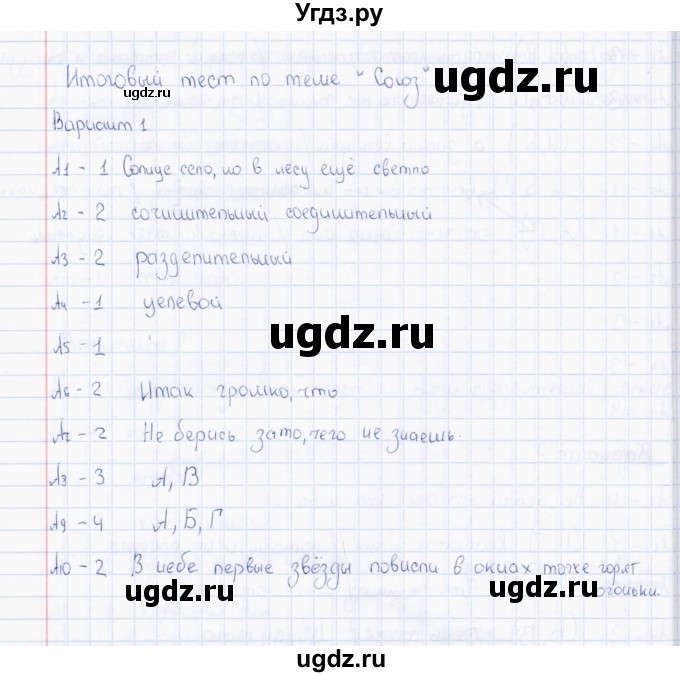 Угдз.ру
Итоговый тест по теме "Союз"
ugdz.ru
ugdz.ru
Вариант 1
А1 - 1 Солнце село, но в лесу ещё светло
А2 - 2 сочинительный соединительный
А3 - 2 разделительный
А4 - 1 целевой
ugdz.ru
А5 - 1
А6 - 2 Итак громко, что
А7 - 2 Не берись зато, чего не знаешь.
А8 - 3 А, В
А9 - 4 А, Б, Г
А10 - 2 В небе первые звёзды повисли в окнах тоже горят
огоньки.
ugdz.ru
ugdz.ru
ugdz.ru